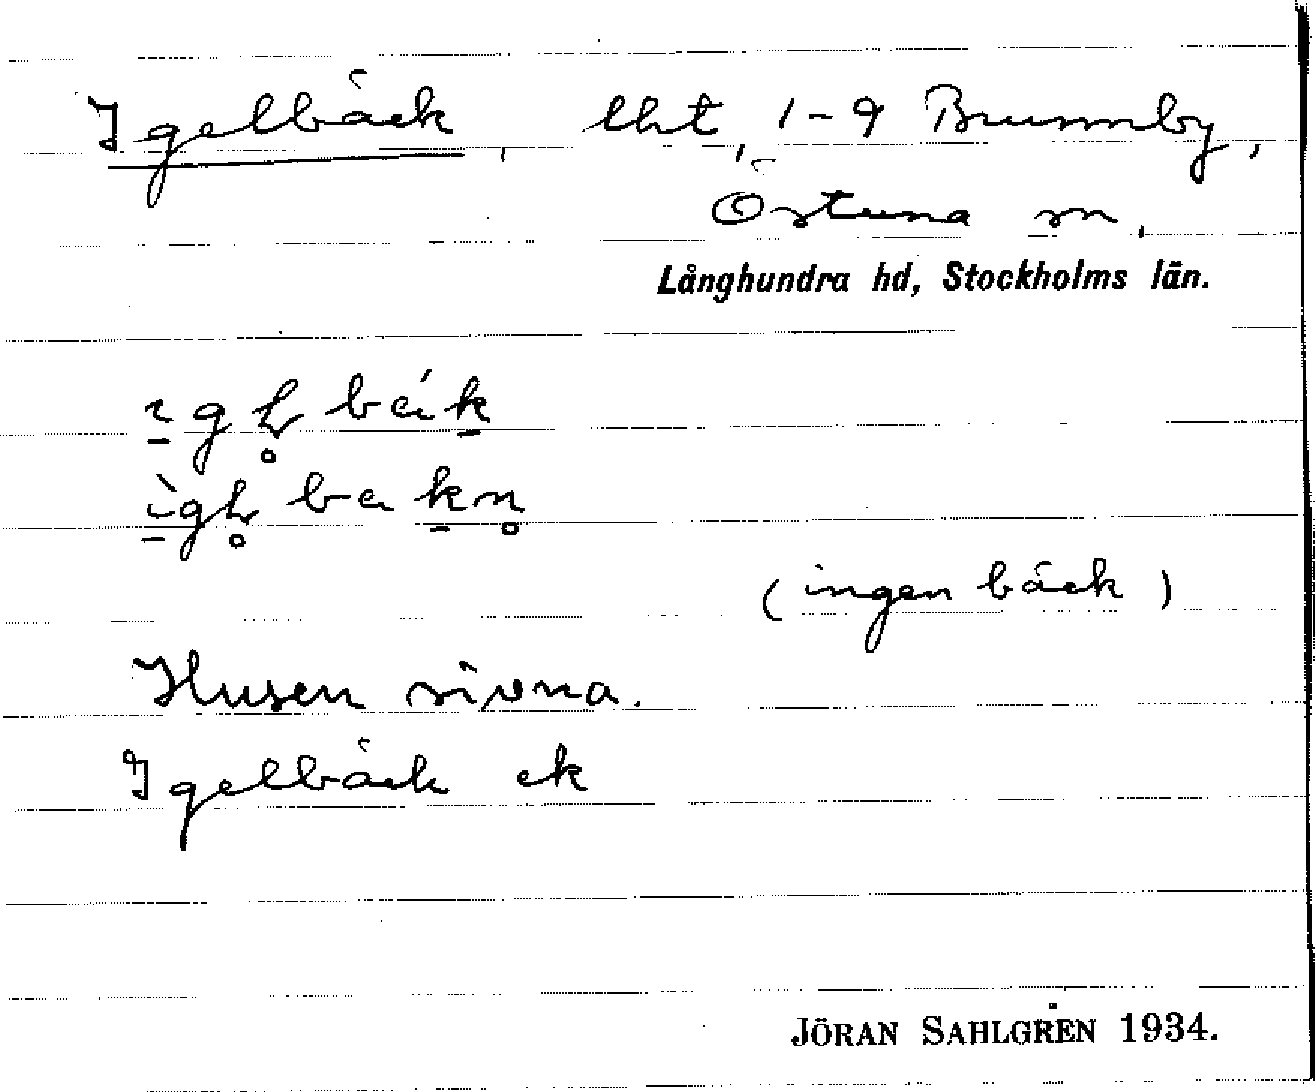 Igelbäck, lht, 1-9 Brunnby,
Östuna sn,
Långhundra hd, Stockholms län.
(ingen bäck)
Husen rivna.
Igelbäck ek
JÖRAN SAHLGREN 1934.